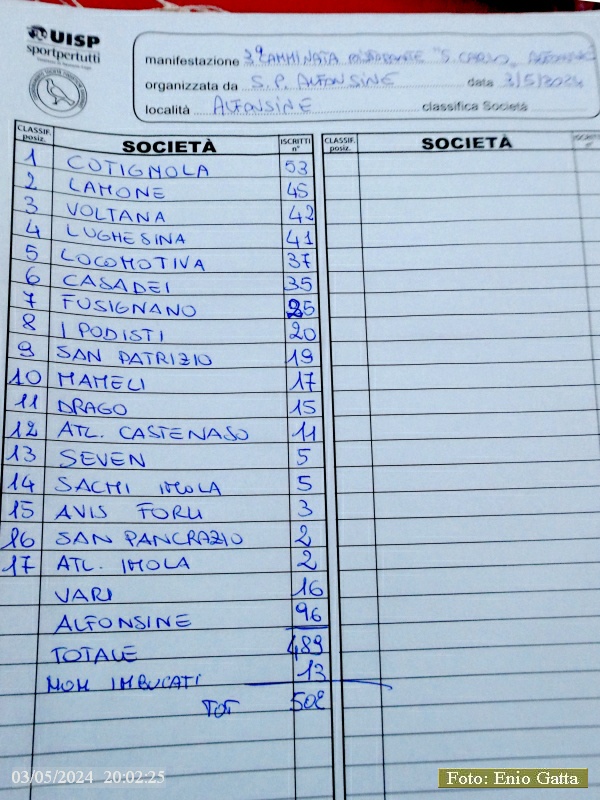 UISP
sportpertutti
manifestazione 3ª CAMMINATA RISTORANTE "S. CARLO" ALFONSINE
organizzata da S.P. ALFONSINE data 3/5/2024
località ALFONSINE classifica Società
CLASSIF. posiz. SOCIETÀ ISCRITTI n° CLASSIF. posiz. SOCIETÀ ISCRITTI n°
1 COTIGNOLA 53
2 LAMONE 45
3 VOLTANA 42
4 LUGHESINA 41
5 LOCOMOTIVA 37
6 CASADEI 35
7 FUSIGNANO 25
8 I PODISTI 20
9 SAN PATRIZIO 19
10 MAMELI 17
11 DRAGO 15
12 ATL. CASTENASO 11
13 SEVEN 5
14 SACMI IMOLA 5
15 AVIS FORLI 3
16 SAN PANCRAZIO 2
17 ATL. IMOLA 2
VARI 16
ALFONSINE 96
TOTALE 489
NON IMBUCATI 13
TOT 502
03/05/2024 20:02:25
Foto: Enio Gatta